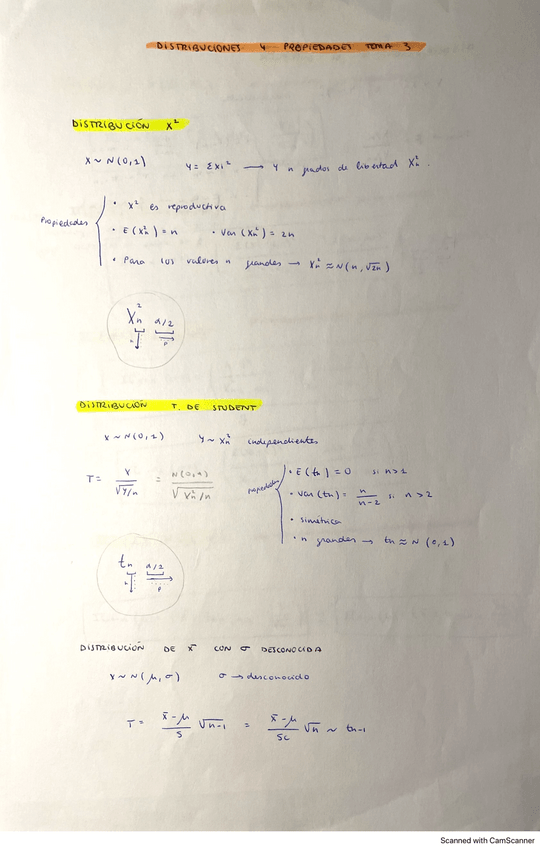 DISTRIBUCIONES Y PROPIEDADES TEMA 3
DISTRIBUCIÓN X²
X ~ N(0,1) Y = Σxi² → Y n grados de libertad Xn².
Propiedades
• X² es reproductiva
• E(Xn²) = n • Var(Xn²) = 2n
• Para los valores n grandes → Xn² ≈ N(n, √2n)
Xn² α/2
n p
DISTRIBUCIÓN T. DE STUDENT
X ~ N(0,1) Y ~ Xn² independientes
T = X / √Y/n = N(0,1) / √Xn²/n
Propiedades
• E(tn) = 0 si n>1
• Var(tn) = n / n-2 si n >2
• simétrica
• n grandes → tn ≈ N(0,1)
tn α/2
n p
DISTRIBUCIÓN DE x̄ CON σ DESCONOCIDA
X ~ N(μ, σ) σ → desconocido
T = x̄-μ / S √n-1 = x̄-μ / Sc √n ~ tn-1
Scanned with CamScanner